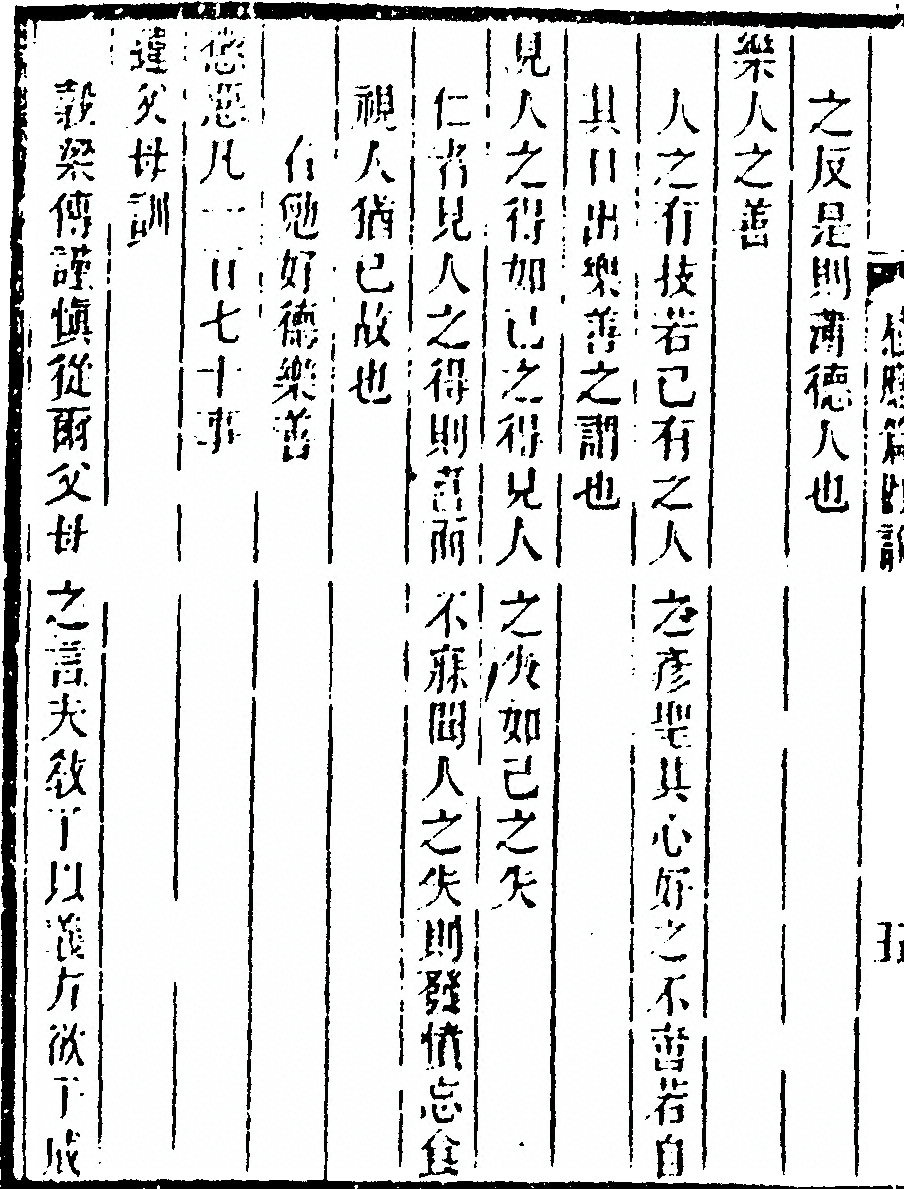 感應篇韻訓
五
之反是則薄德人也
樂人之善
人之有技若已有之人之彥聖其心好之不啻若自
其口出樂善之謂也
見人之得如已之得見人之失如己之失
仁者見人之得則喜而不寐聞人之失則發憤忘食
視人猶已故也
右勉好德樂善
懲惡凡一百七十事
違父母訓
穀梁傳謹慎從爾父母之言夫教子以義方欲子成